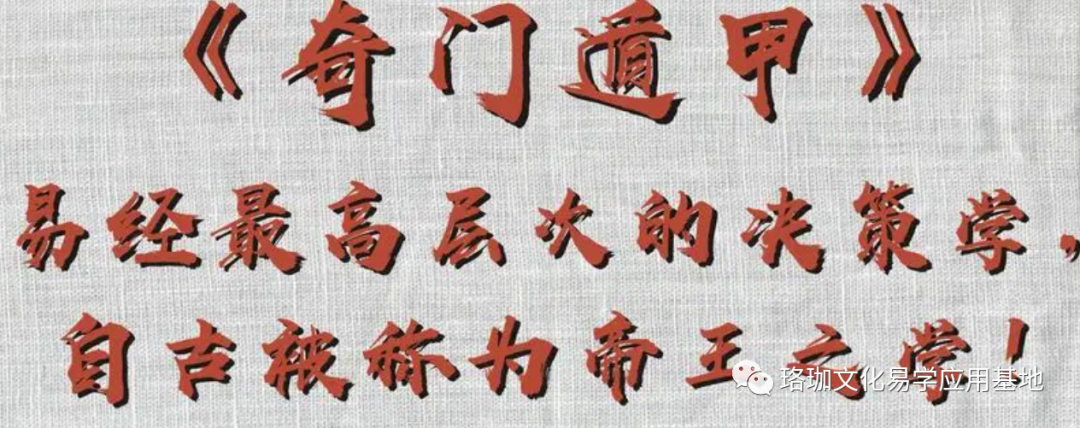 《奇门遁甲》
易经最高层次的决策学，
自古被称为帝王之学！
珞珈文化易学应用基地